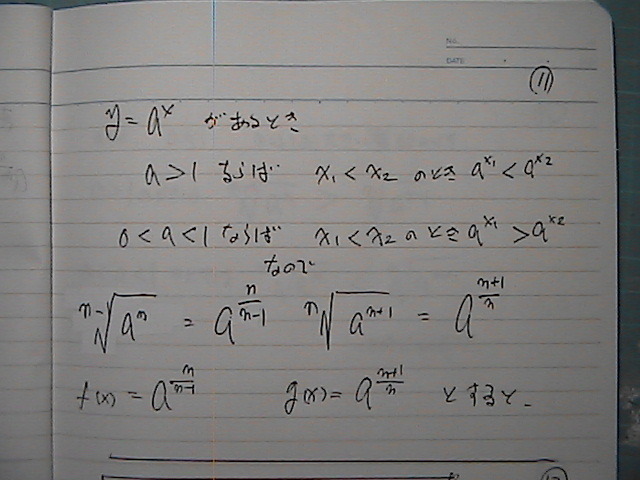 NO.
DATE
⑪
y = a^x があるとき
a > 1 ならば x₁ < x₂ のとき a^{x₁} < a^{x₂}
0 < a < 1 ならば x₁ < x₂ のとき a^{x₁} > a^{x₂}
なので
ⁿ⁻¹√(a^n) = a^{n/(n-1)} ⁿ√(a^{n+1}) = a^{(n+1)/n}
f(x) = a^{n/(n-1)} g(x) = a^{(n+1)/n} とすると、